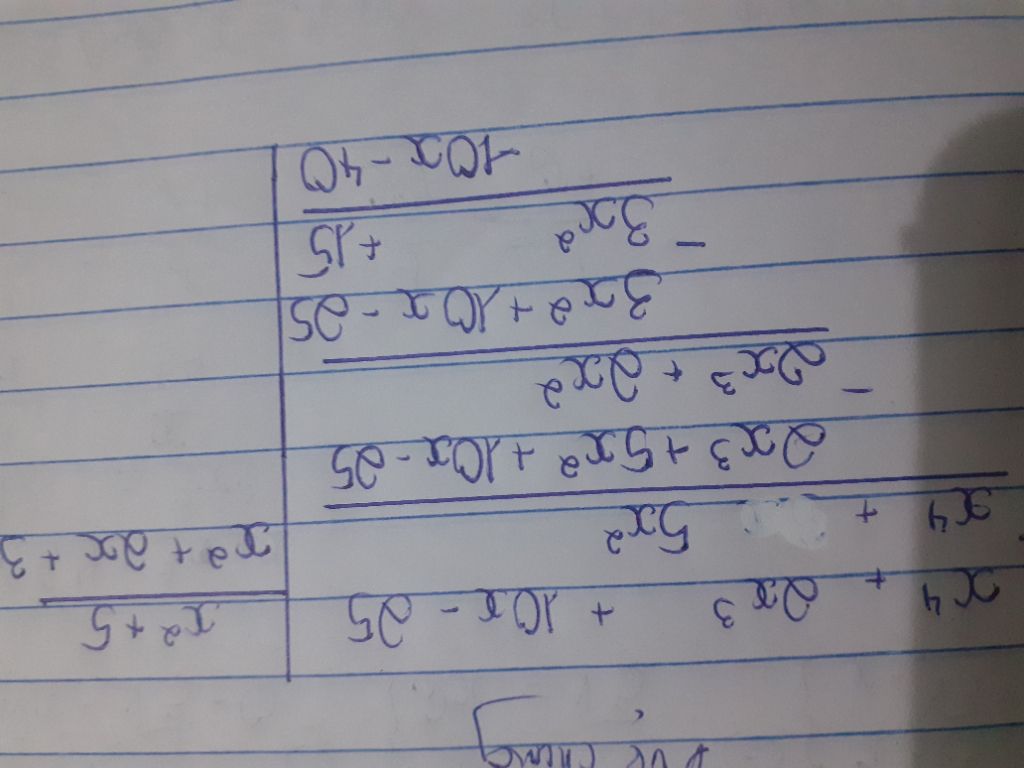 x⁴ + 2x³ + 10x - 25 x² + 5
x⁴ + 5x² x² + 2x + 3
2x³ + 5x² + 10x - 25
- 2x³ + 2x²
3x² + 10x - 25
- 3x² + 15
-10x - 40